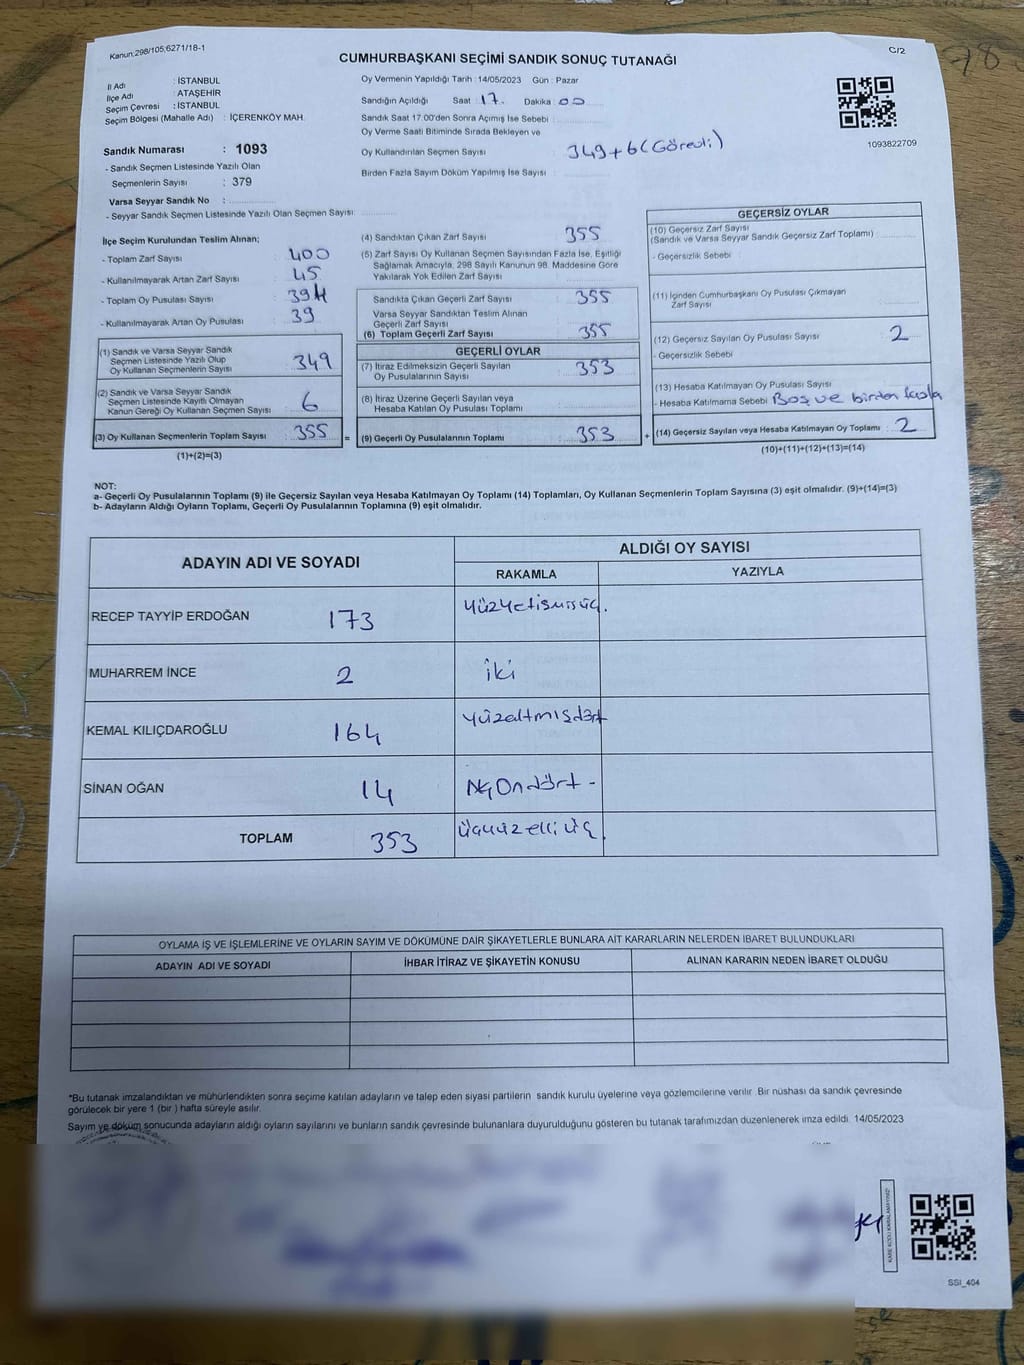 Kanun:298/105;6271/18-1
C/2
CUMHURBAŞKANI SEÇİMİ SANDIK SONUÇ TUTANAĞI
İl Adı : İSTANBUL
İlçe Adı : ATAŞEHİR
Seçim Çevresi : İSTANBUL
Seçim Bölgesi (Mahalle Adı) : İÇERENKÖY MAH.
Sandık Numarası : 1093
- Sandık Seçmen Listesinde Yazılı Olan
Seçmenlerin Sayısı : 379
Varsa Seyyar Sandık No :
- Seyyar Sandık Seçmen Listesinde Yazılı Olan Seçmen Sayısı:
Oy Vermenin Yapıldığı Tarih : 14/05/2023 Gün : Pazar
Sandığın Açıldığı Saat : 17. Dakika : 00
Sandık Saat 17.00'den Sonra Açımış İse Sebebi :
Oy Verme Saati Bitiminde Sırada Bekleyen ve
Oy Kullandırılan Seçmen Sayısı : 349+6 (Görevli)
Birden Fazla Sayım Döküm Yapılmış İse Sayısı :
1093822709
İlçe Seçim Kurulundan Teslim Alınan;
- Toplam Zarf Sayısı : 400
- Kullanılmayarak Artan Zarf Sayısı : 45
- Toplam Oy Pusulası Sayısı : 394
- Kullanılmayarak Artan Oy Pusulası : 39
(1) Sandık ve Varsa Seyyar Sandık
Seçmen Listesinde Yazılı Olup
Oy Kullanan Seçmenlerin Sayısı : 349
(2) Sandık ve Varsa Seyyar Sandık
Seçmen Listesinde Kayıtlı Olmayan
Kanun Gereği Oy Kullanan Seçmen Sayısı : 6
(3) Oy Kullanan Seçmenlerin Toplam Sayısı : 355 =
(1)+(2)=(3)
(4) Sandıktan Çıkan Zarf Sayısı : 355
(5) Zarf Sayısı Oy Kullanan Seçmen Sayısından Fazla İse, Eşitliği
Sağlamak Amacıyla, 298 Sayılı Kanunun 98. Maddesine Göre
Yakılarak Yok Edilen Zarf Sayısı :
Sandıkta Çıkan Geçerli Zarf Sayısı : 355
Varsa Seyyar Sandıktan Teslim Alınan
Geçerli Zarf Sayısı :
(6) Toplam Geçerli Zarf Sayısı : 355
GEÇERLİ OYLAR
(7) İtiraz Edilmeksizin Geçerli Sayılan
Oy Pusulalarının Sayısı : 353
(8) İtiraz Üzerine Geçerli Sayılan veya
Hesaba Katılan Oy Pusulası Toplamı :
(9) Geçerli Oy Pusulalarının Toplamı : 353 +
GEÇERSİZ OYLAR
(10) Geçersiz Zarf Sayısı
(Sandık ve Varsa Seyyar Sandık Geçersiz Zarf Toplamı) :
- Geçersizlik Sebebi :
(11) İçinden Cumhurbaşkanı Oy Pusulası Çıkmayan
Zarf Sayısı :
(12) Geçersiz Sayılan Oy Pusulası Sayısı : 2
- Geçersizlik Sebebi
(13) Hesaba Katılmayan Oy Pusulası Sayısı
- Hesaba Katılmama Sebebi : Boş ve birden fazla
(14) Geçersiz Sayılan veya Hesaba Katılmayan Oy Toplamı : 2
(10)+(11)+(12)+(13)=(14)
NOT:
a- Geçerli Oy Pusulalarının Toplamı (9) ile Geçersiz Sayılan veya Hesaba Katılmayan Oy Toplamı (14) Toplamları, Oy Kullanan Seçmenlerin Toplam Sayısına (3) eşit olmalıdır. (9)+(14)=(3)
b- Adayların Aldığı Oyların Toplamı, Geçerli Oy Pusulalarının Toplamına (9) eşit olmalıdır.
ADAYIN ADI VE SOYADI
ALDIĞI OY SAYISI
RAKAMLA YAZIYLA
RECEP TAYYİP ERDOĞAN 173 yüzyetişmişüç.
MUHARREM İNCE 2 iki
KEMAL KILIÇDAROĞLU 164 yüzaltmışdört
SİNAN OĞAN 14 Ondört -
TOPLAM 353 üçyüzelliüç
OYLAMA İŞ VE İŞLEMLERİNE VE OYLARIN SAYIM VE DÖKÜMÜNE DAİR ŞİKAYETLERLE BUNLARA AİT KARARLARIN NELERDEN İBARET BULUNDUKLARI
ADAYIN ADI VE SOYADI İHBAR İTİRAZ VE ŞİKAYETİN KONUSU ALINAN KARARIN NEDEN İBARET OLDUĞU
*Bu tutanak imzalandıktan ve mühürlendikten sonra seçime katılan adayların ve talep eden siyasi partilerin sandık kurulu üyelerine veya gözlemcilerine verilir. Bir nüshası da sandık çevresinde
görülecek bir yere 1 (bir ) hafta süreyle asılır.
Sayım ve döküm sonucunda adayların aldığı oyların sayılarını ve bunların sandık çevresinde bulunanlara duyurulduğunu gösteren bu tutanak tarafımızdan düzenlenerek imza edildi. 14/05/2023
KARE KODU KARALAMAYINIZ!
SSI_404